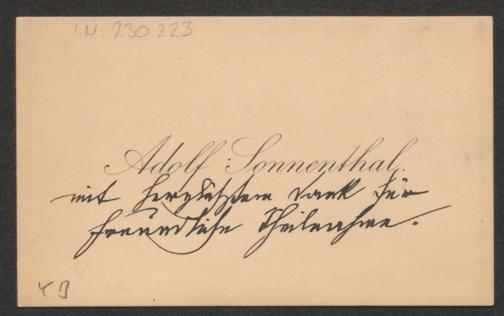 I.N. 230.223
Adolf Sonnenthal
mit herzlichstem Dank für
freundliche Theilnahme.